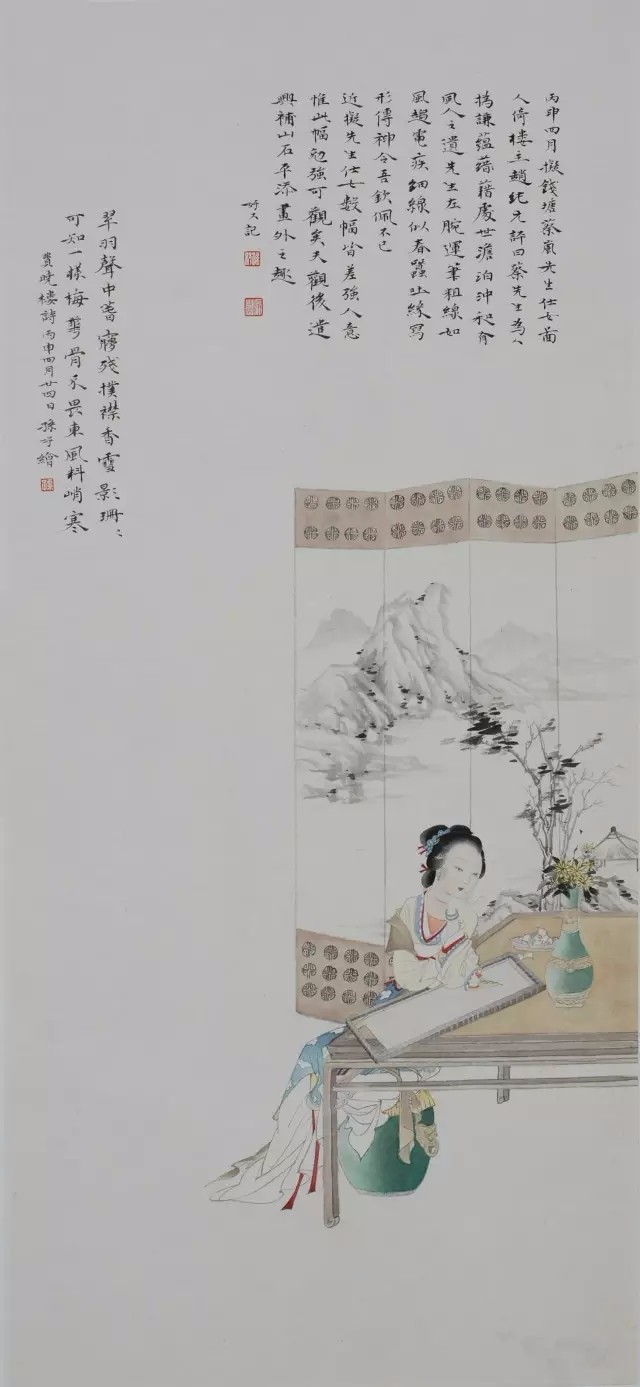 丙申四月擬錢塘蔡嵐先生仕女
人倚樓主趙純元評曰蔡先生為人
撝謙蘊藉處世澹泊沖和
風人之遺先生左腕運筆粗線如
風趨電疾細線似春蠶吐絲寫
形傳神令吾欽佩不已
近擬先生仕女數幅皆差強人意
惟此幅勉強可觀矣天觀後遣
興補山石平添畫外之趣
又記
翠羽聲中殘撲襟香雪影珊〻
可知一樣梅華骨不畏東風料峭寒
費曉樓詩丙申四月廿四日孫繪